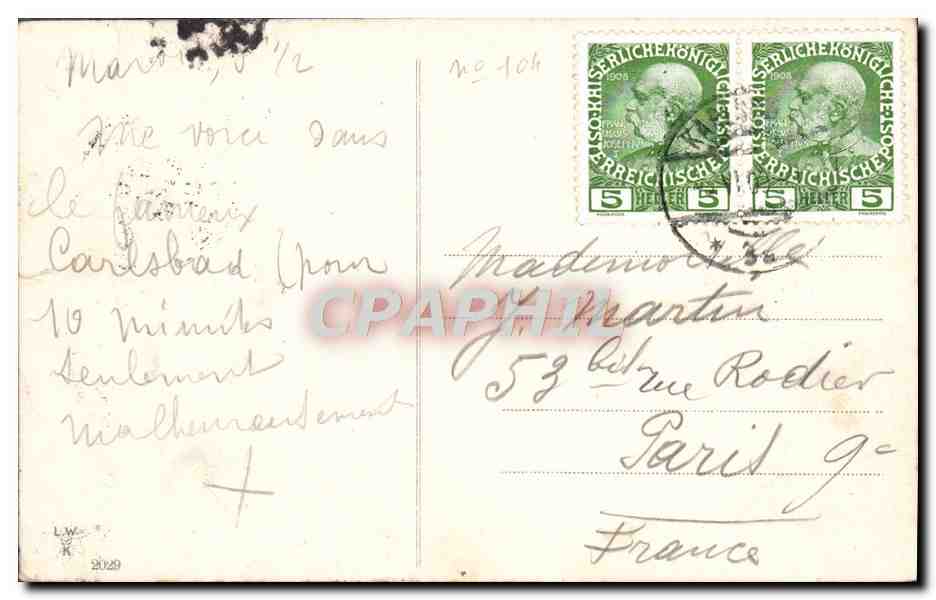 Mardi, 5 1/2
me voici dans
le fameux
Carlsbad (pour
10 minutes
seulement
malheureusement
L.W.
K
2029
no 104
KAISERLICHE KÖNIGLICHE
ÖSTERREICHISCHE POST
1908
5 HELLER 5
KAISERLICHE KÖNIGLICHE
ÖSTERREICHISCHE POST
1908
5 HELLER 5
Mademoiselle
Y. Martin
53 bis rue Rodier
Paris 9e
France
CPAPHIL